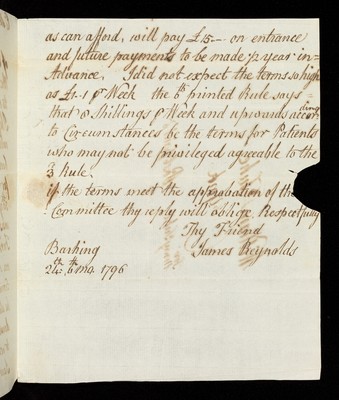 as can afford, will pay £15 — on entrance
and future payments to be made ½ year in=
Advance. I did not expect the terms so high
as £1..1 ℘ Week the 6th printed Rule says
that 8 Shillings ℘ Week and upwards according
to Circumstances be the terms for Patients
who may not be privileged agreeable to the
3 Rule.
if the terms meet the approbation of the
Committee thy reply will oblige Respectfully
Thy Friend
Barking James Reynolds
24th 6th mo. 1796